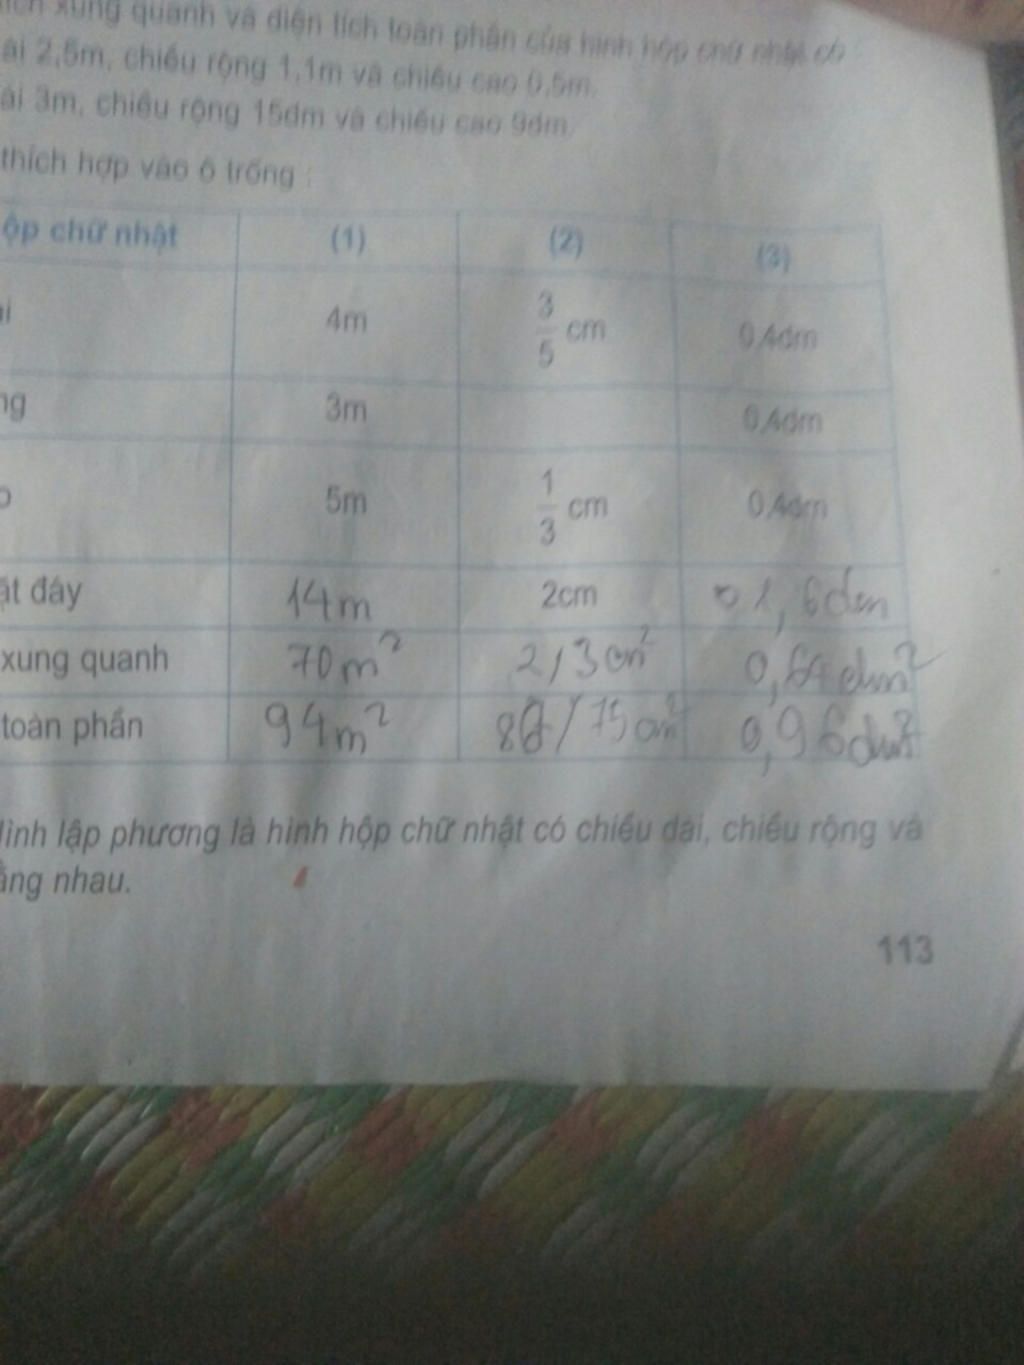 xung quanh và diện tích toàn phần của hình hộp chữ nhật có :
ài 2,5m, chiều rộng 1,1m và chiều cao 0,5m.
ài 3m, chiều rộng 15dm và chiều cao 9dm.
thích hợp vào ô trống :
ộp chữ nhật (1) (2) (3)
i 4m 3/5 cm 0,4dm
ng 3m 0,4dm
o 5m 1/3 cm 0,4dm
ặt đáy 14m 2cm 1,6dm
xung quanh 70m² 2/3cm² 0,64dm²
toàn phần 94m² /75cm² 0,96dm²
Hình lập phương là hình hộp chữ nhật có chiều dài, chiều rộng và
ằng nhau.
113